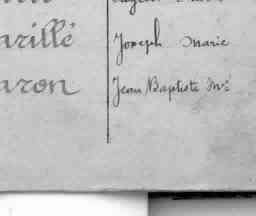 arillé Joseph Marie
aron Jean Baptiste Mie